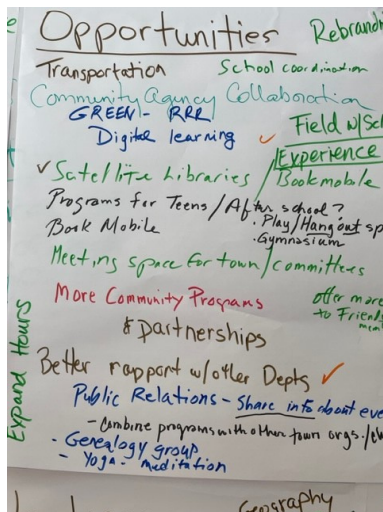 Opportunities
Rebrandi
Transportation
School coordination
Community agency Collaboration
GREEN - RRR
Digital learning
Field w/Sc
Experience
✓ Satellite Libraries
Bookmobile
Programs for Teens / After school?
• Play / Hangout sp
Book Mobile
• Gymnasium
Meeting space for town/committees
More Community Programs
& partnerships
offer more
to Friends
mem
Expand Hours
Better rapport w/other Depts ✓
Public Relations - Share info about eve
- Combine programs with other town orgs./c
- Genealogy group
- Yoga - meditation
Geography